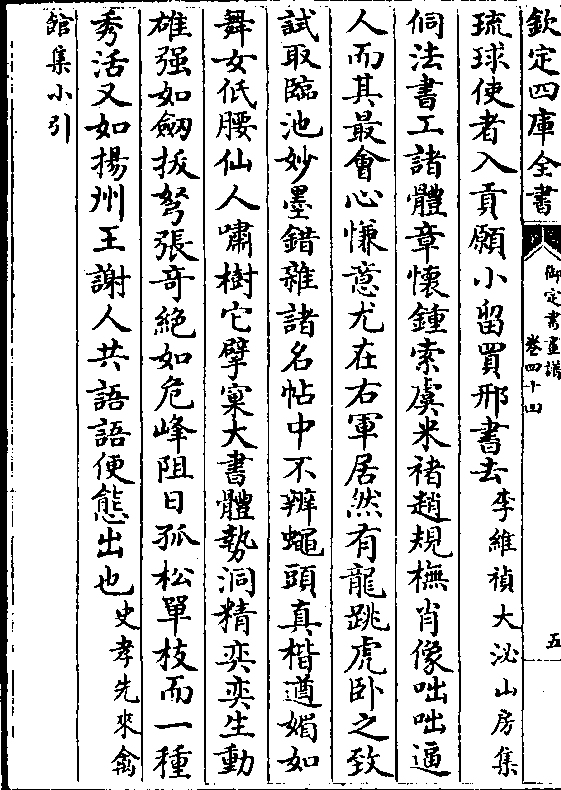 欽定四庫全書
御定書畫譜
卷四十四
五
琉球使者入貢願小留買邢書去李維禎大泌山房集
侗法書工諸體章懷鍾索虞米褚趙規橅肖像咄咄逼
人而其最會心慊意尤在右軍居然有龍跳虎卧之致
試取臨池妙墨錯雜諸名帖中不辨蠅頭真楷遒媚如
舞女低腰仙人嘯樹它擘窠大書體勢洞精奕奕生動
雄强如劒拔弩張奇絶如危峰阻日孤松單枝而一種
秀活又如揚州王謝人共語語便態出也史孝先來禽
館集小引